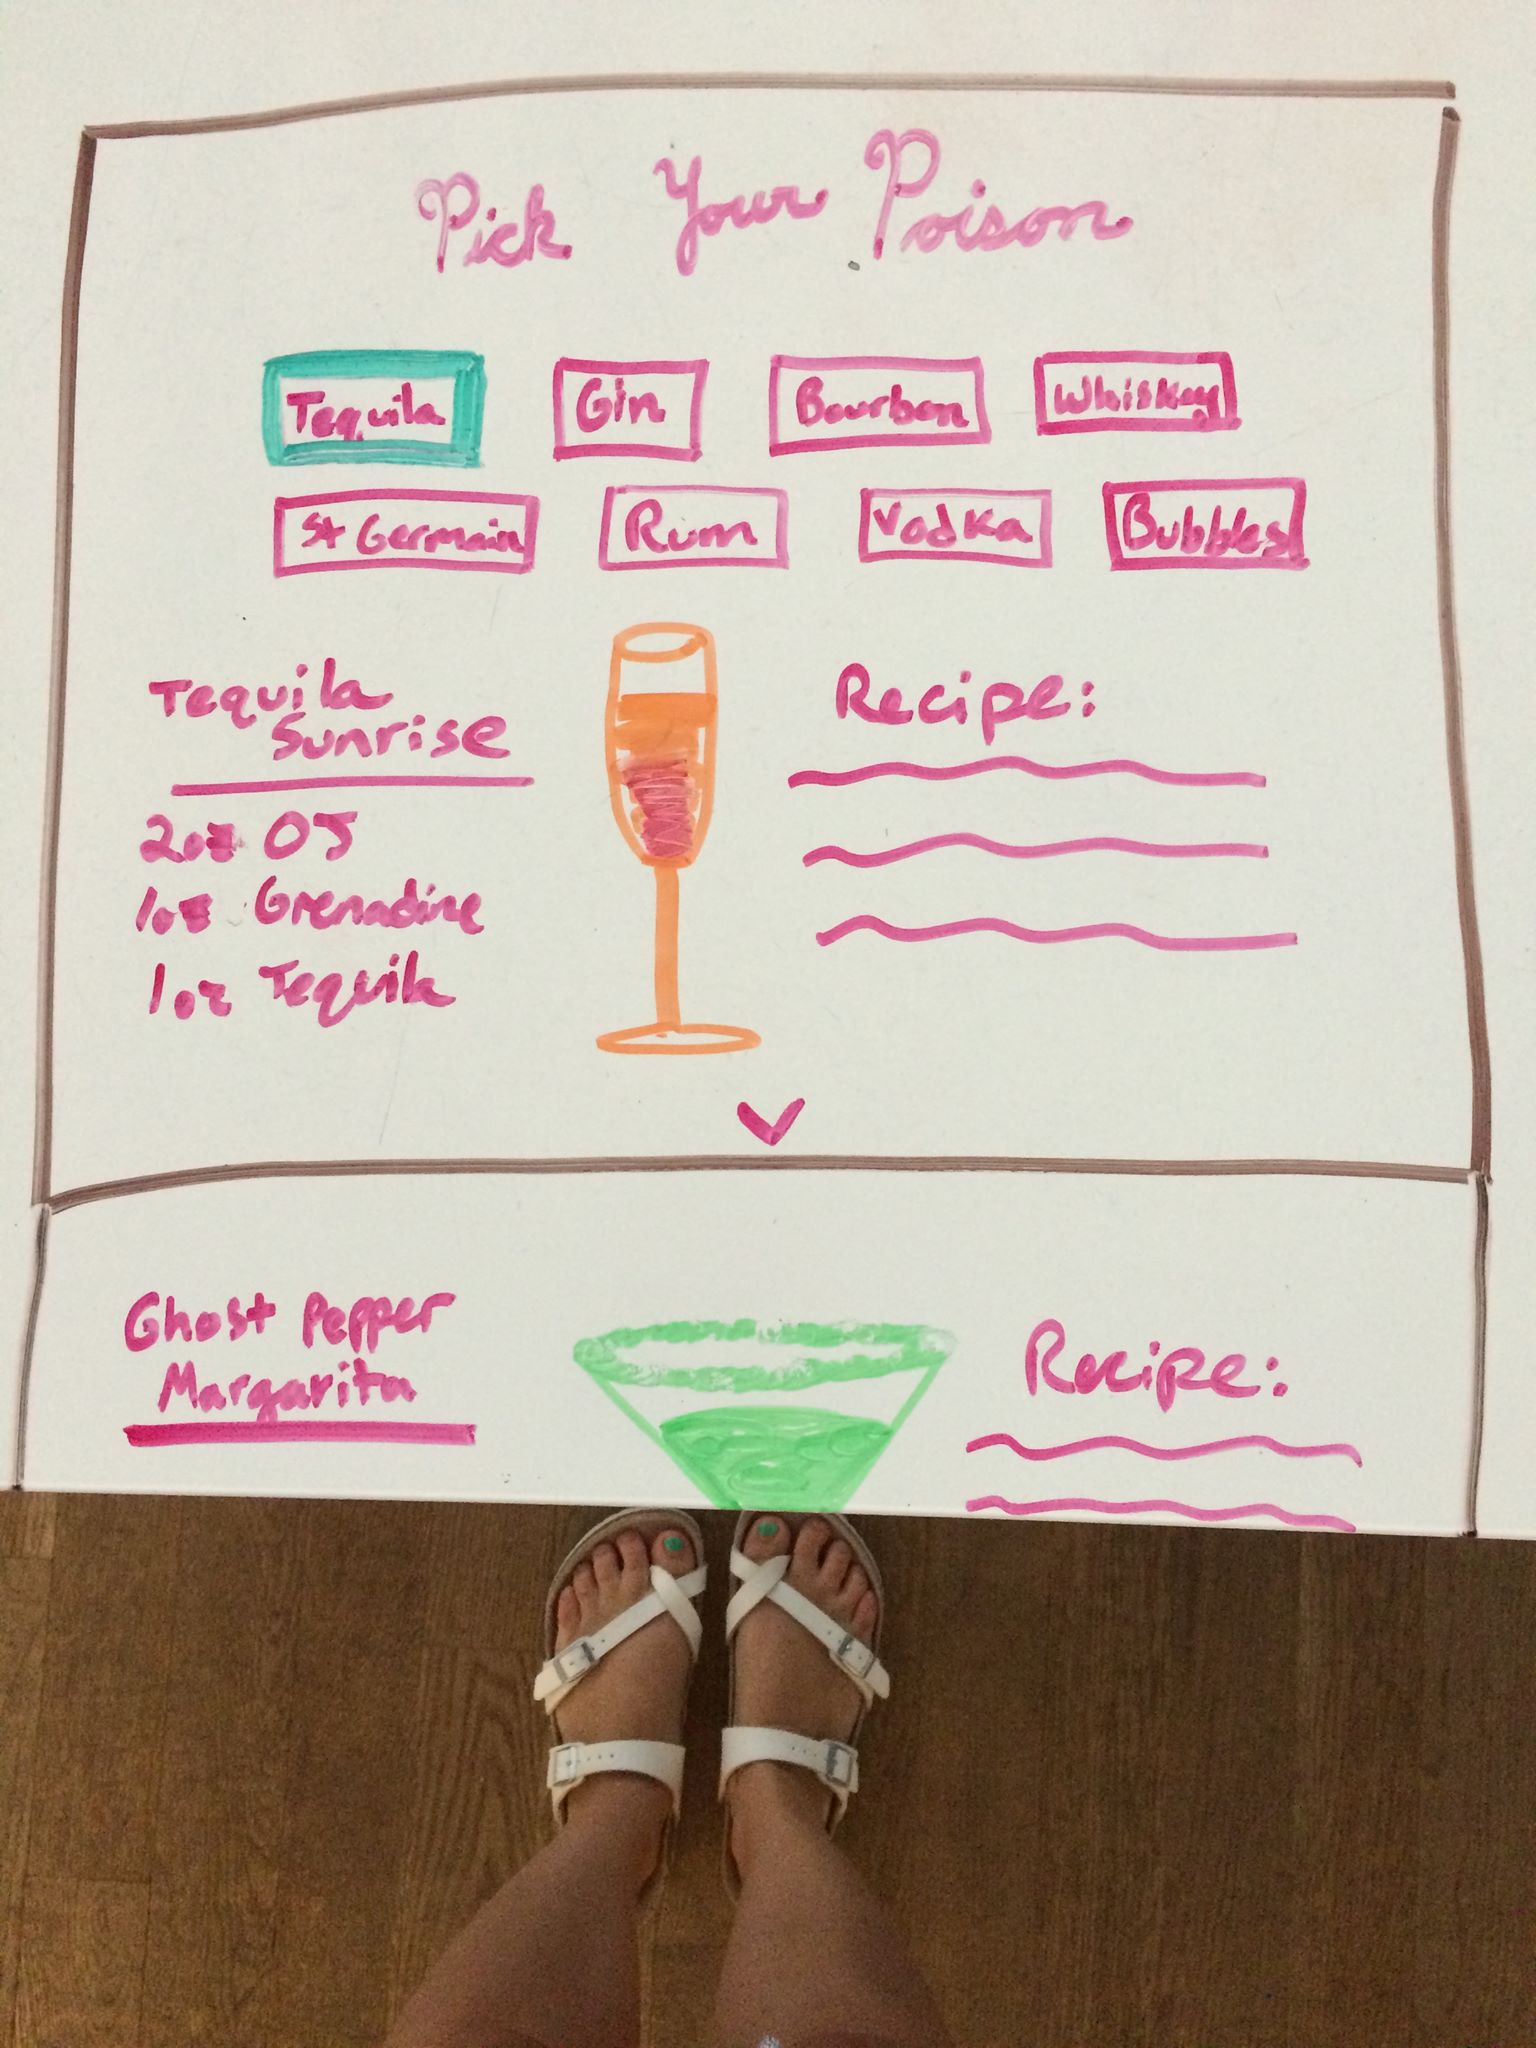 Pick Your Poison
Tequila Gin Bourbon Whiskey
St Germain Rum Vodka Bubbles
Tequila
Sunrise
2oz OJ
1oz Grenadine
1oz Tequila
Recipe:
Ghost Pepper
Margarita
Recipe: